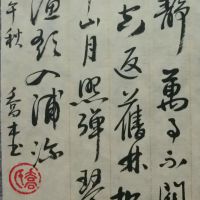 静萬事不關
知返舊林松
山月照彈琴
漁歌入浦深
午秋
喬木书